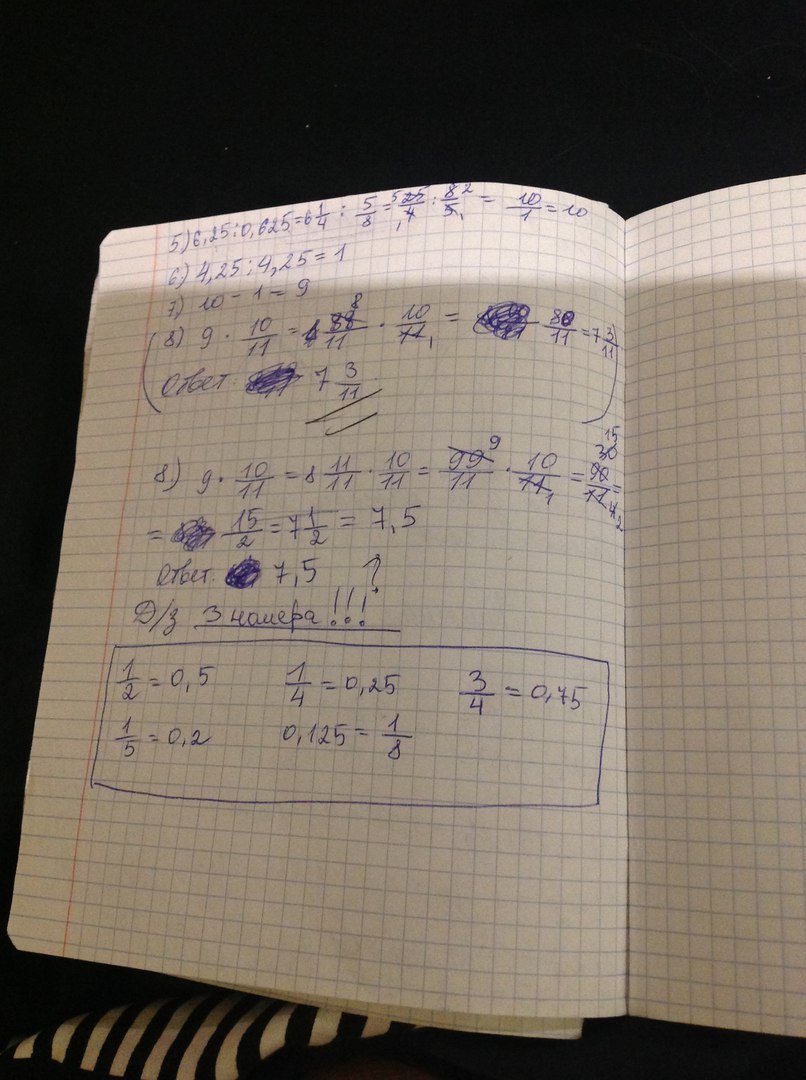 5) 6,25 : 0,625 = 6 1/4 : 5/8 = 25/4 : 8/5 = 10/1 = 10
6) 4,25 : 4,25 = 1
7) 10 - 1 = 9
8) 9 · 10/11 = 88/11 · 10/11 = 80/11 = 7 3/11
Ответ 7 3/11
8) 9 · 10/11 = 8 11/11 · 10/11 = 99/11 · 10/11 = 90/11 =
= 15/2 = 7 1/2 = 7,5
Ответ. 7,5 ?
Д/з 3 номера !!!
1/2 = 0,5 1/4 = 0,25 3/4 = 0,75
1/5 = 0,2 0,125 = 1/8